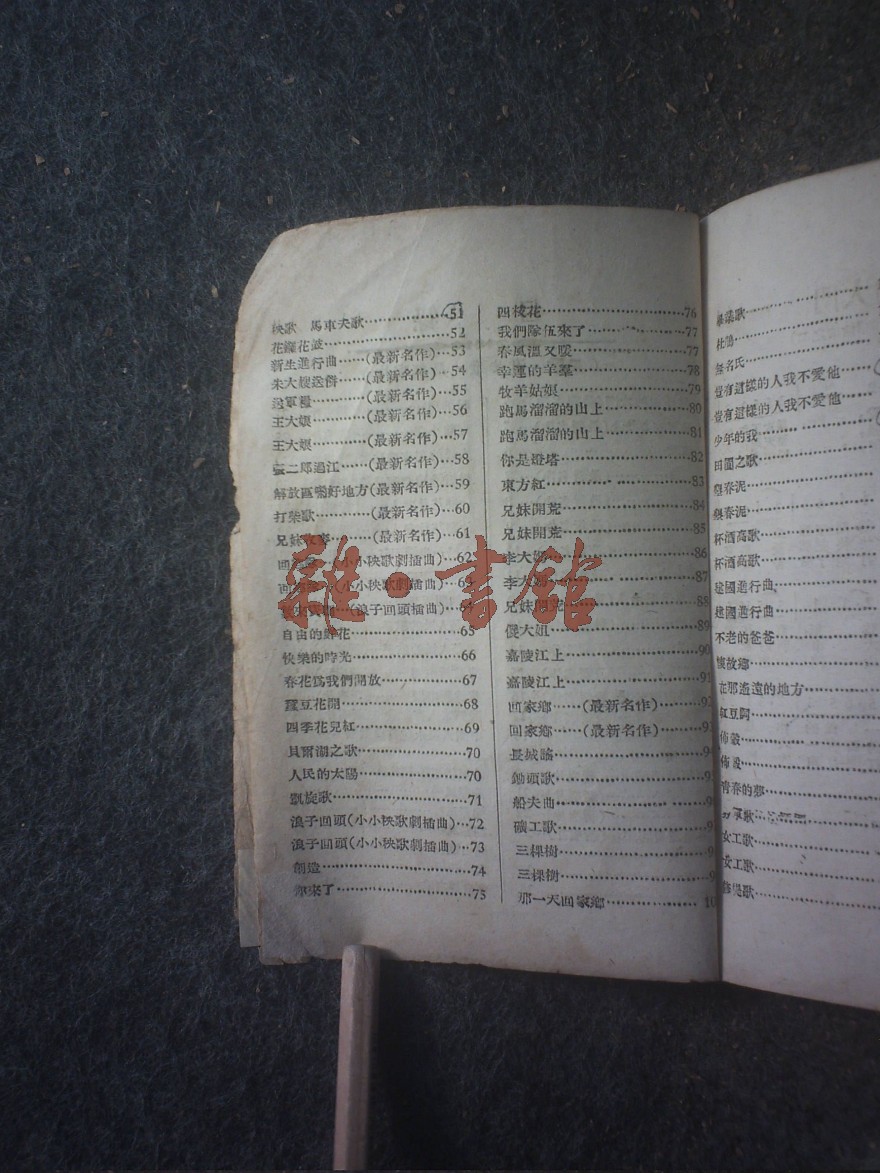 秧歌　馬車夫歌………51
花鼓…52
新生進行曲……(最新名作)…53
朱大嫂送…(最新名作)…54
送軍……(最新名作)…55
王大娘……(最新名作)…56
王大娘……(最新名作)…57
二郎過江……(最新名作)…58
解放區好地方(最新名作)…59
打柴歌……(最新名作)…60
兄妹……(最新名作)…61
(小小秧歌劇插曲)…62
(小小秧歌劇插曲)…63
(浪子回頭插曲)…64
自由的花…65
快樂的時光…66
春花爲我們開放…67
豆花開…68
四季花兒紅…69
貝爾湖之歌…70
人民的太陽…70
凱旋歌…71
浪子回頭(小小秧歌劇插曲)…72
浪子回頭(小小秧歌劇插曲)…73
創造…74
你來了…75
四枝花…76
我們隊伍來了…77
春風溫又暖…77
幸運的羊羣…78
牧羊姑娘…79
跑馬溜溜的山上…80
跑馬溜溜的山上…81
你是燈塔…82
東方紅…83
兄妹開荒…84
兄妹開荒…85
李大媽…86
李大媽…87
兄妹開荒…88
儍大姐…89
嘉陵江上…90
嘉陵江上…91
回家鄉……(最新名作)…92
回家鄉……(最新名作)…93
長城謠…94
鋤頭歌…9
船夫曲…9
礦工歌…9
三棵樹…9
三棵樹…9
那一天回家鄉…10
畢業歌
杜鵑
無名氏
豈有這樣的人我不愛他
豈有這樣的人我不愛他
少年的我
田園之歌
春泥
春泥
杯酒高歌
杯酒高歌
建國進行曲
建國進行曲
不老的爸爸
懷故鄉
在那遙遠的地方
紅豆詞
佈穀
佈穀
青春的夢
軍歌
女工歌
女工歌
歌
雜·書館